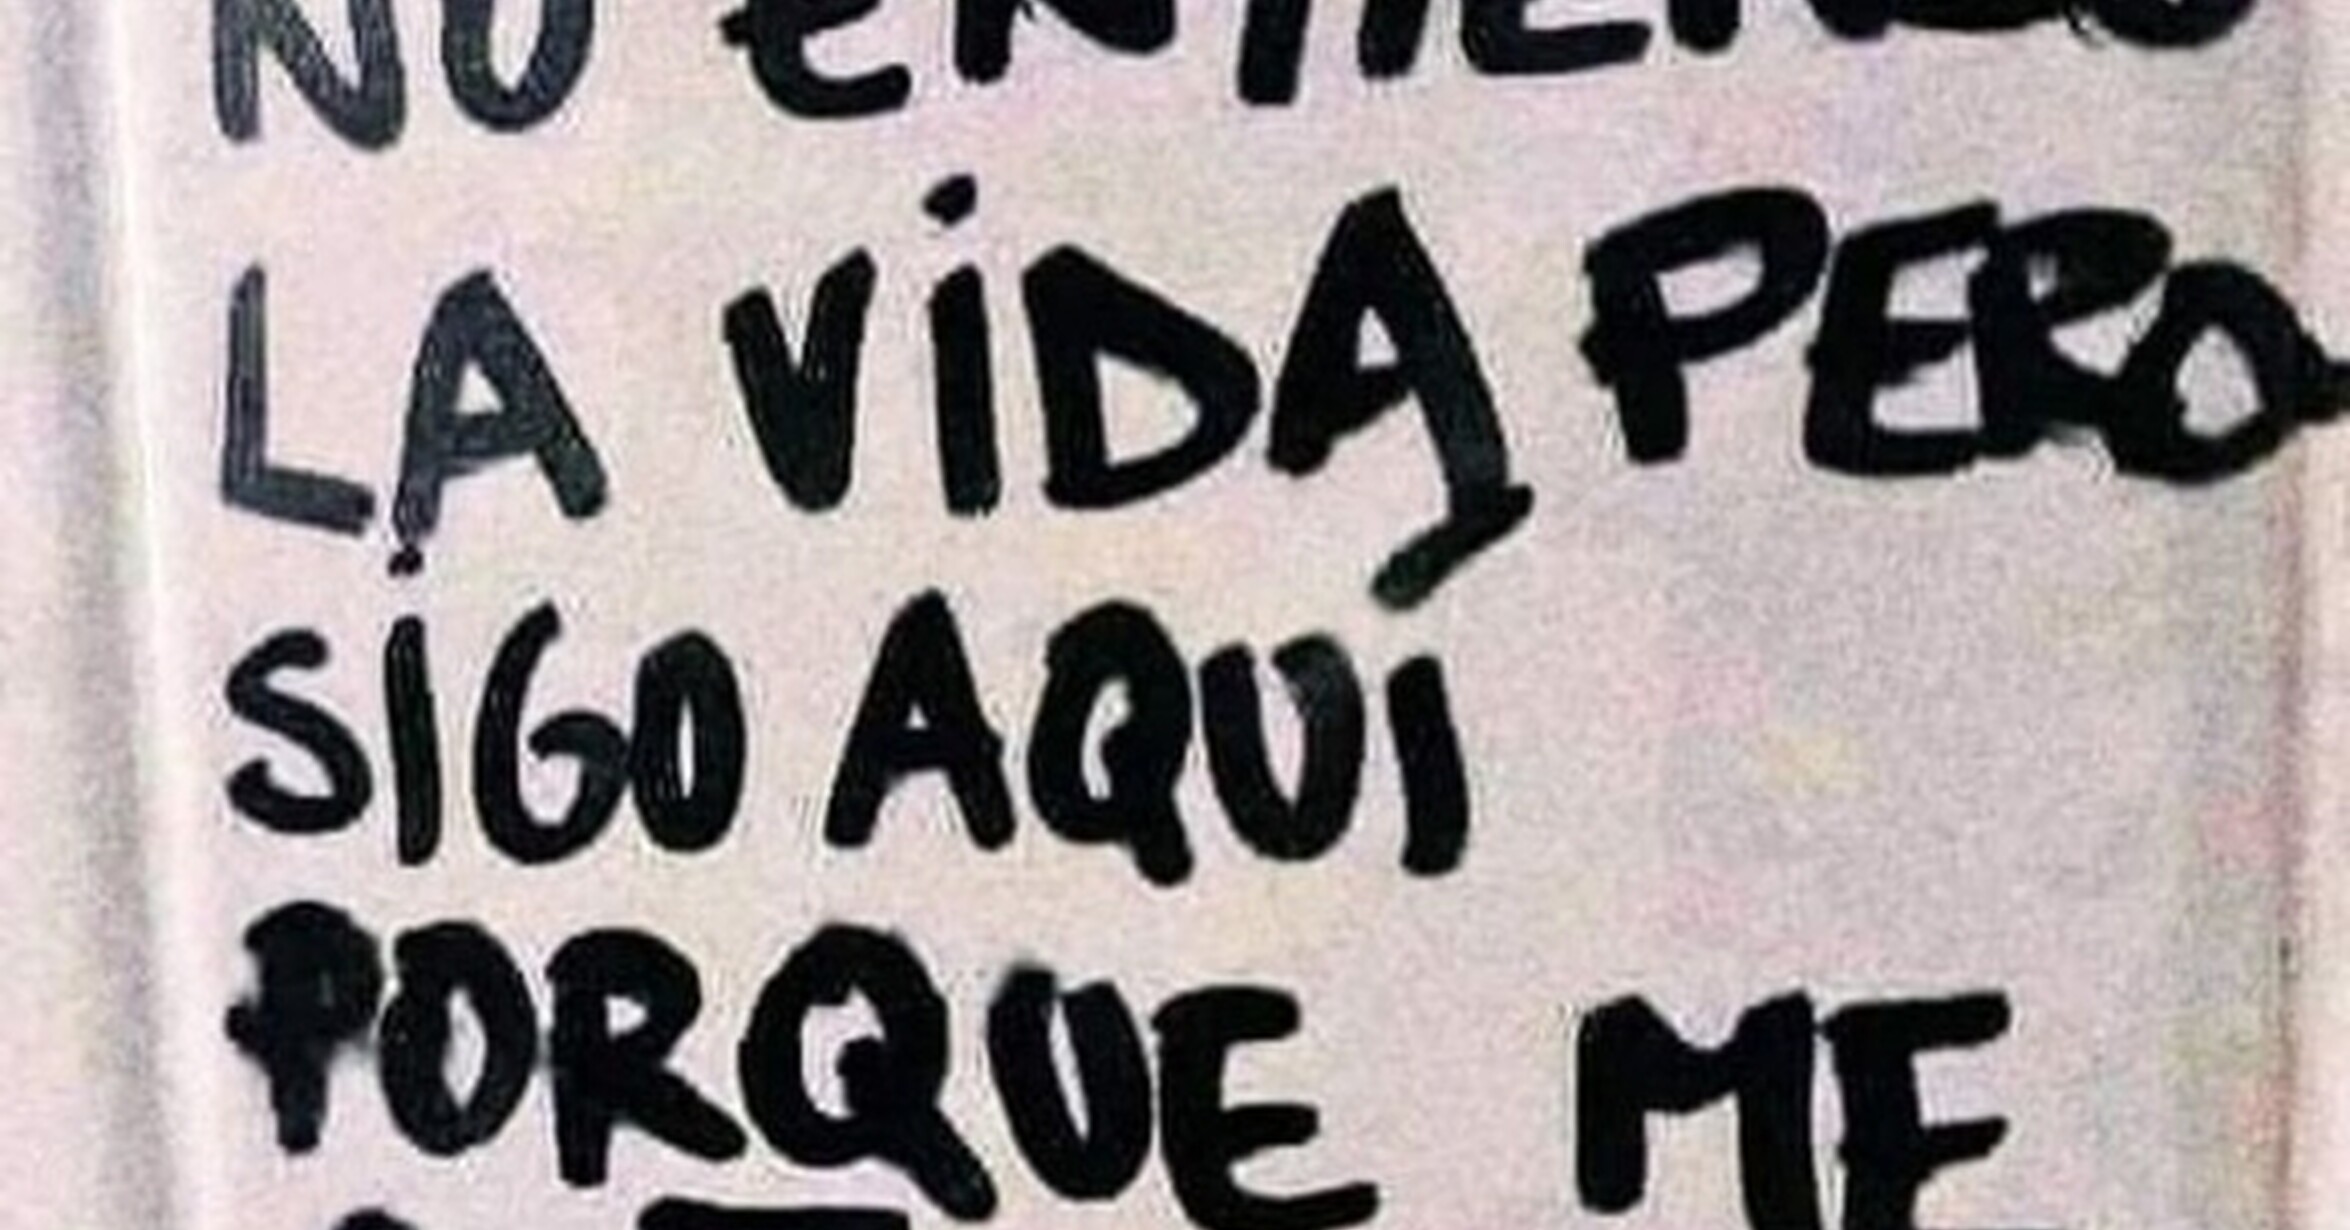 NO ENTIENDO
LA VIDA, PERO
SIGO AQUÍ
PORQUE ME